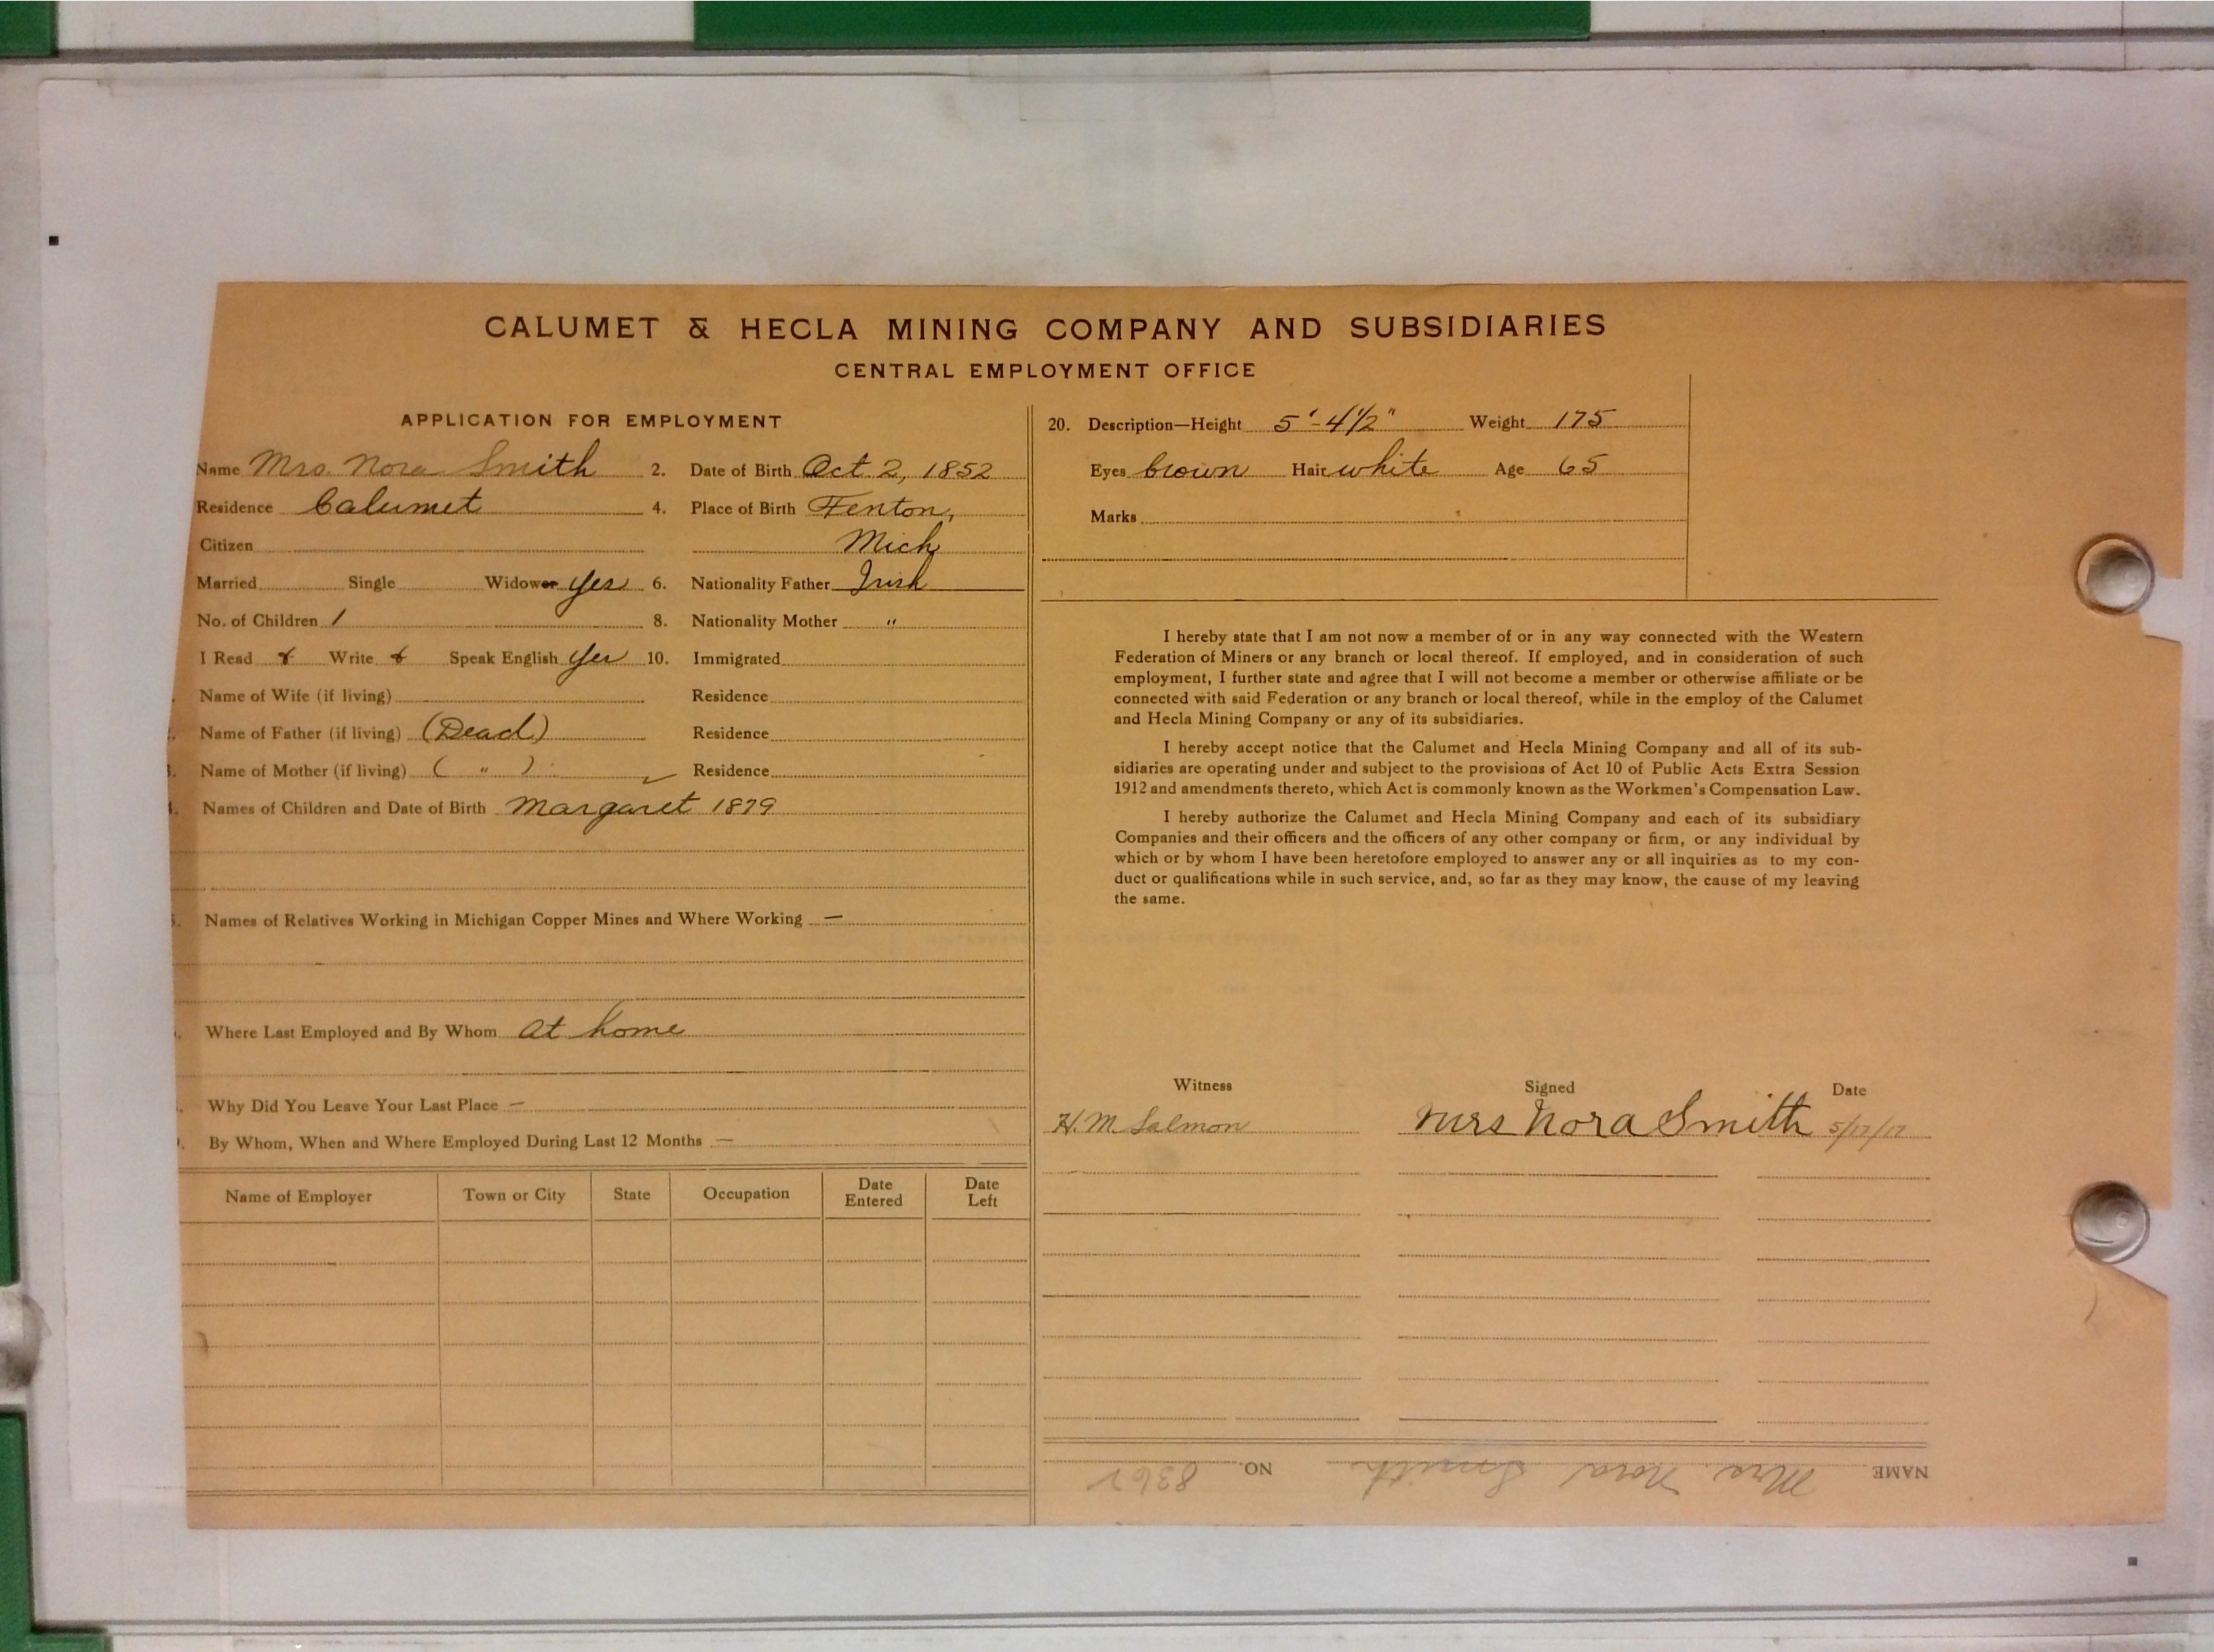 CALUMET & HECLA MINING COMPANY AND SUBSIDIARIES
CENTRAL EMPLOYMENT OFFICE
APPLICATION FOR EMPLOYMENT
Name Mrs. Nora Smith 2. Date of Birth Oct 2, 1852
Residence Calumet 4. Place of Birth Fenton,
Citizen Mich
Married Single Widower yes 6. Nationality Father Irish
No. of Children 1 8. Nationality Mother "
I Read Write Speak English yes 10. Immigrated
Name of Wife (if living) Residence
Name of Father (if living) (Dead) Residence
Name of Mother (if living) ( " ) Residence
Names of Children and Date of Birth Margaret 1879
Names of Relatives Working in Michigan Copper Mines and Where Working —
Where Last Employed and By Whom at home
Why Did You Leave Your Last Place —
By Whom, When and Where Employed During Last 12 Months —
Name of Employer Town or City State Occupation Date Entered Date Left
20. Description—Height 5'-4½" Weight 175
Eyes brown Hair white Age 65
Marks
I hereby state that I am not now a member of or in any way connected with the Western
Federation of Miners or any branch or local thereof. If employed, and in consideration of such
employment, I further state and agree that I will not become a member or otherwise affiliate or be
connected with said Federation or any branch or local thereof, while in the employ of the Calumet
and Hecla Mining Company or any of its subsidiaries.
I hereby accept notice that the Calumet and Hecla Mining Company and all of its sub-
sidiaries are operating under and subject to the provisions of Act 10 of Public Acts Extra Session
1912 and amendments thereto, which Act is commonly known as the Workmen's Compensation Law.
I hereby authorize the Calumet and Hecla Mining Company and each of its subsidiary
Companies and their officers and the officers of any other company or firm, or any individual by
which or by whom I have been heretofore employed to answer any or all inquiries as to my con-
duct or qualifications while in such service, and, so far as they may know, the cause of my leaving
the same.
Witness Signed Date
H. M Salmon Mrs Nora Smith 5/17/17
NAME Mrs. Nora Smith NO.